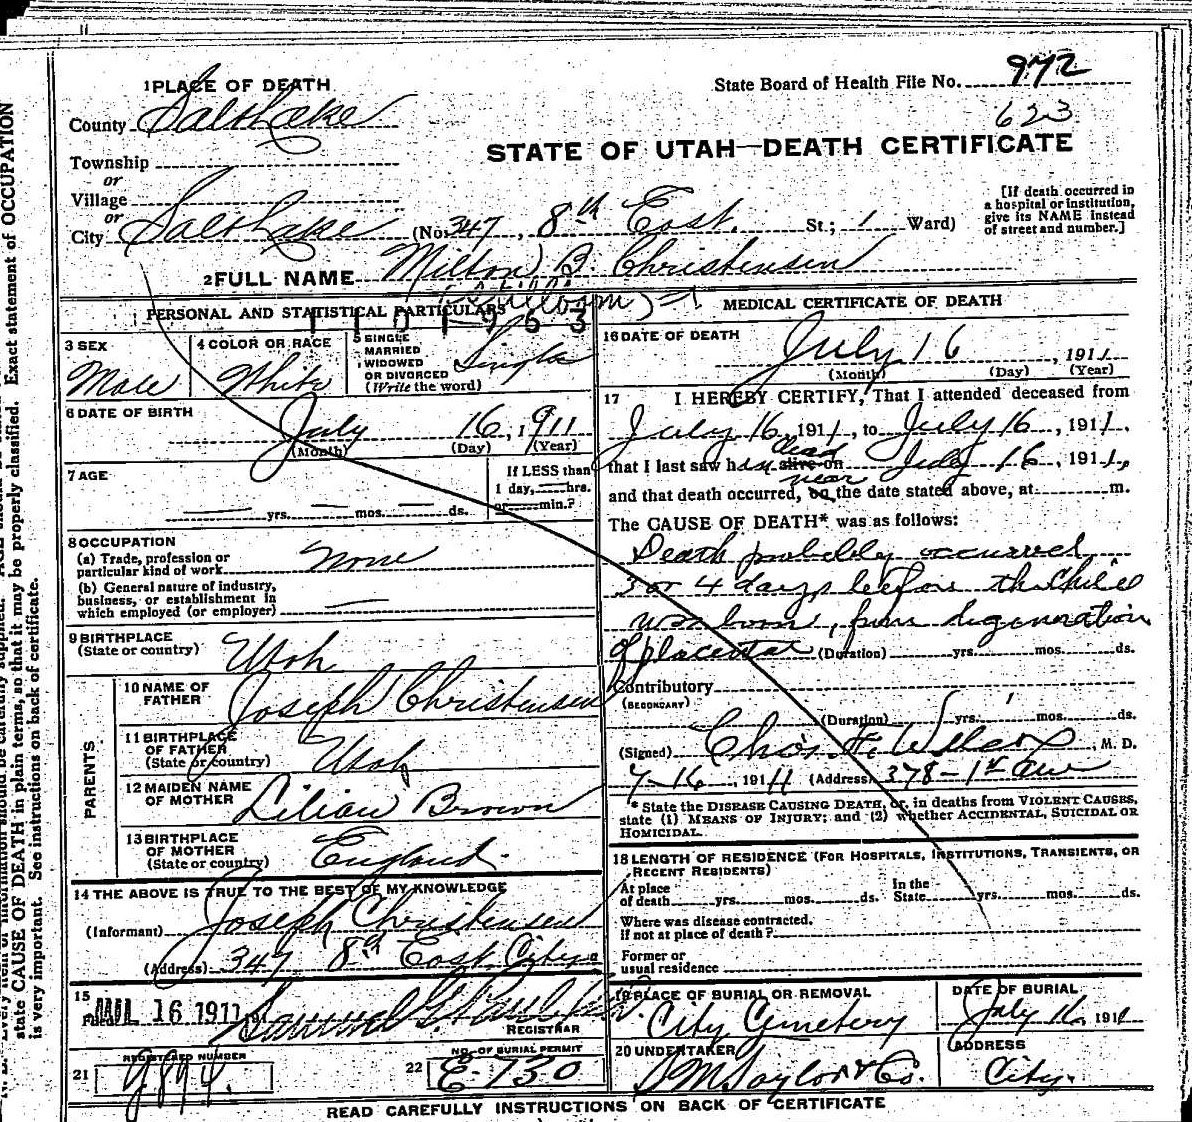 1 PLACE OF DEATH
State Board of Health File No. 972
County Salt Lake
623
STATE OF UTAH—DEATH CERTIFICATE
Township
or
Village
or
City Salt Lake (No. 347, 8th East. St.; 1 Ward)
[If death occurred in
a hospital or institution,
give its NAME instead
of street and number.]
2 FULL NAME Milton B. Christensen
(Stillborn)
PERSONAL AND STATISTICAL PARTICULARS
3 SEX
Male
4 COLOR OR RACE
White
5 SINGLE
MARRIED
WIDOWED
OR DIVORCED
(Write the word)
Single
6 DATE OF BIRTH
July 16, 1911
(Month) (Day) (Year)
7 AGE
yrs. mos. ds.
If LESS than
1 day, hrs.
or min.?
8 OCCUPATION
(a) Trade, profession or
particular kind of work None
(b) General nature of industry,
business, or establishment in
which employed (or employer)
9 BIRTHPLACE
(State or country)
Utah
PARENTS
10 NAME OF
FATHER
Joseph Christensen
11 BIRTHPLACE
OF FATHER
(State or country)
Utah
12 MAIDEN NAME
OF MOTHER
Lilian Brown
13 BIRTHPLACE
OF MOTHER
(State or country)
England
14 THE ABOVE IS TRUE TO THE BEST OF MY KNOWLEDGE
(Informant) Joseph Christensen
(Address) 347 8th East City
15
JUL 16 1911
REGISTRAR
REGISTERED NUMBER
21
NO. OF BURIAL PERMIT
22 E-730
MEDICAL CERTIFICATE OF DEATH
16 DATE OF DEATH
July 16, 1911
(Month) (Day) (Year)
17 I HEREBY CERTIFY, That I attended deceased from
July 16, 1911, to July 16, 1911,
dead
that I last saw him alive on July 16, 1911,
near
and that death occurred, on the date stated above, at m.
The CAUSE OF DEATH* was as follows:
Death probably occurred
3 or 4 days before the child
was born, from degeneration
of placenta (Duration) yrs. mos. ds.
Contributory
(SECONDARY)
(Duration) yrs. mos. ds.
(Signed) Chas. F. Wilcox, M. D.
7-16, 1911 (Address) 378-1st Ave
* State the DISEASE CAUSING DEATH, or, in deaths from VIOLENT CAUSES,
state (1) MEANS OF INJURY; and (2) whether ACCIDENTAL, SUICIDAL OR
HOMICIDAL.
18 LENGTH OF RESIDENCE (FOR HOSPITALS, INSTITUTIONS, TRANSIENTS, OR
RECENT RESIDENTS)
At place
of death yrs. mos. ds.
In the
State yrs. mos. ds.
Where was disease contracted.
if not at place of death?
Former or
usual residence
19 PLACE OF BURIAL OR REMOVAL
City Cemetery
DATE OF BURIAL
July 16, 1911
20 UNDERTAKER
S M Taylor & Co.
ADDRESS
City.
READ CAREFULLY INSTRUCTIONS ON BACK OF CERTIFICATE
Exact statement of OCCUPATION
state CAUSE OF DEATH in plain terms, so that it may be properly classified.
is very important. See instructions on back of certificate.